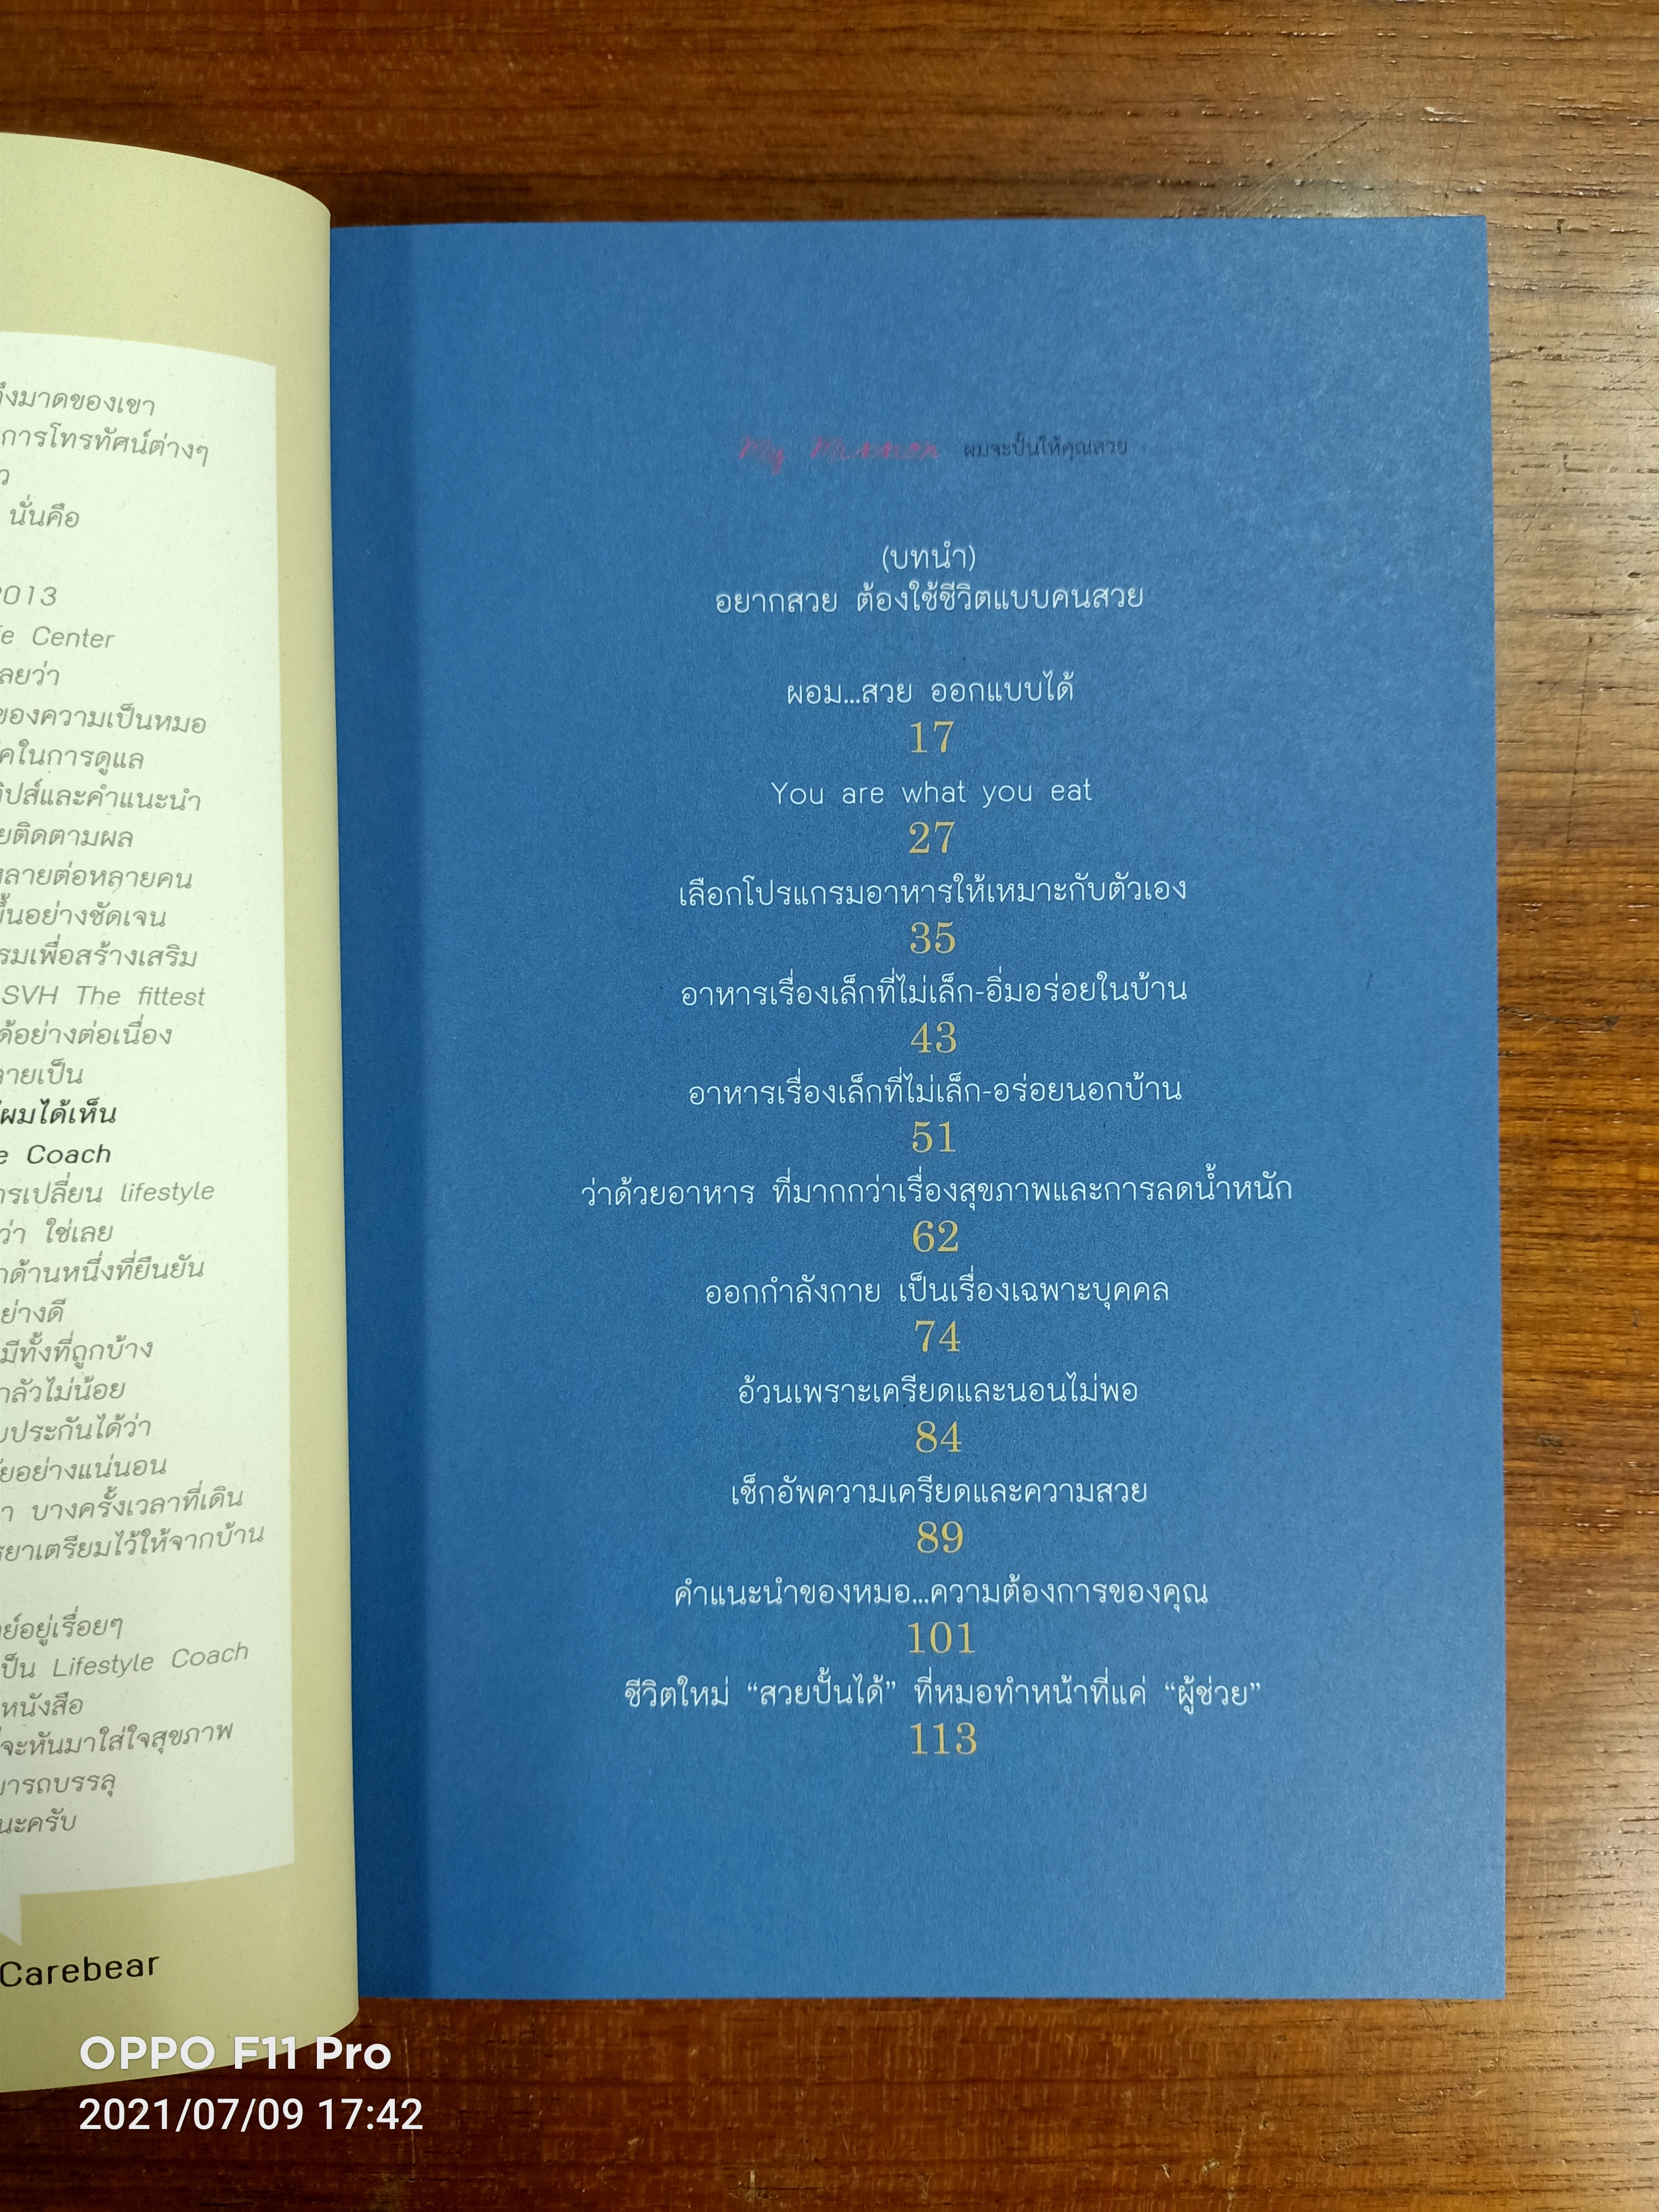 ถึงมาดของเขา
การโทรทัศน์ต่างๆ
นั่นคือ
2013
Center
เลยว่า
ของความเป็นหมอ
ในการดูแล
ทิปส์และคำแนะนำ
ติดตามผล
หลายต่อหลายคน
ขึ้นอย่างชัดเจน
เพื่อสร้างเสริม
SVH The fittest
ได้อย่างต่อเนื่อง
กลายเป็น
ผมได้เห็น
Coach
การเปลี่ยน lifestyle
ว่า ใช่เลย
ด้านหนึ่งที่ยืนยัน
อย่างดี
มีทั้งที่ถูกบ้าง
กลัวไม่น้อย
ประกันได้ว่า
อย่างแน่นอน
บางครั้งเวลาที่เดิน
เตรียมไว้ให้จากบ้าน
อยู่เรื่อยๆ
เป็น Lifestyle Coach
หนังสือ
จะหันมาใส่ใจสุขภาพ
สามารถบรรลุ
นะครับ
Carebear
My Mission ผมจะปั้นให้คุณสวย
(บทนำ)
อยากสวย ต้องใช้ชีวิตแบบคนสวย
ผอม...สวย ออกแบบได้
17
You are what you eat
27
เลือกโปรแกรมอาหารให้เหมาะกับตัวเอง
35
อาหารเรื่องเล็กที่ไม่เล็ก-อิ่มอร่อยในบ้าน
43
อาหารเรื่องเล็กที่ไม่เล็ก-อร่อยนอกบ้าน
51
ว่าด้วยอาหาร ที่มากกว่าเรื่องสุขภาพและการลดน้ำหนัก
62
ออกกำลังกาย เป็นเรื่องเฉพาะบุคคล
74
อ้วนเพราะเครียดและนอนไม่พอ
84
เช็กอัพความเครียดและความสวย
89
คำแนะนำของหมอ...ความต้องการของคุณ
101
ชีวิตใหม่ “สวยปั้นได้” ที่หมอทำหน้าที่แค่ “ผู้ช่วย”
113
OPPO F11 Pro
2021/07/09 17:42